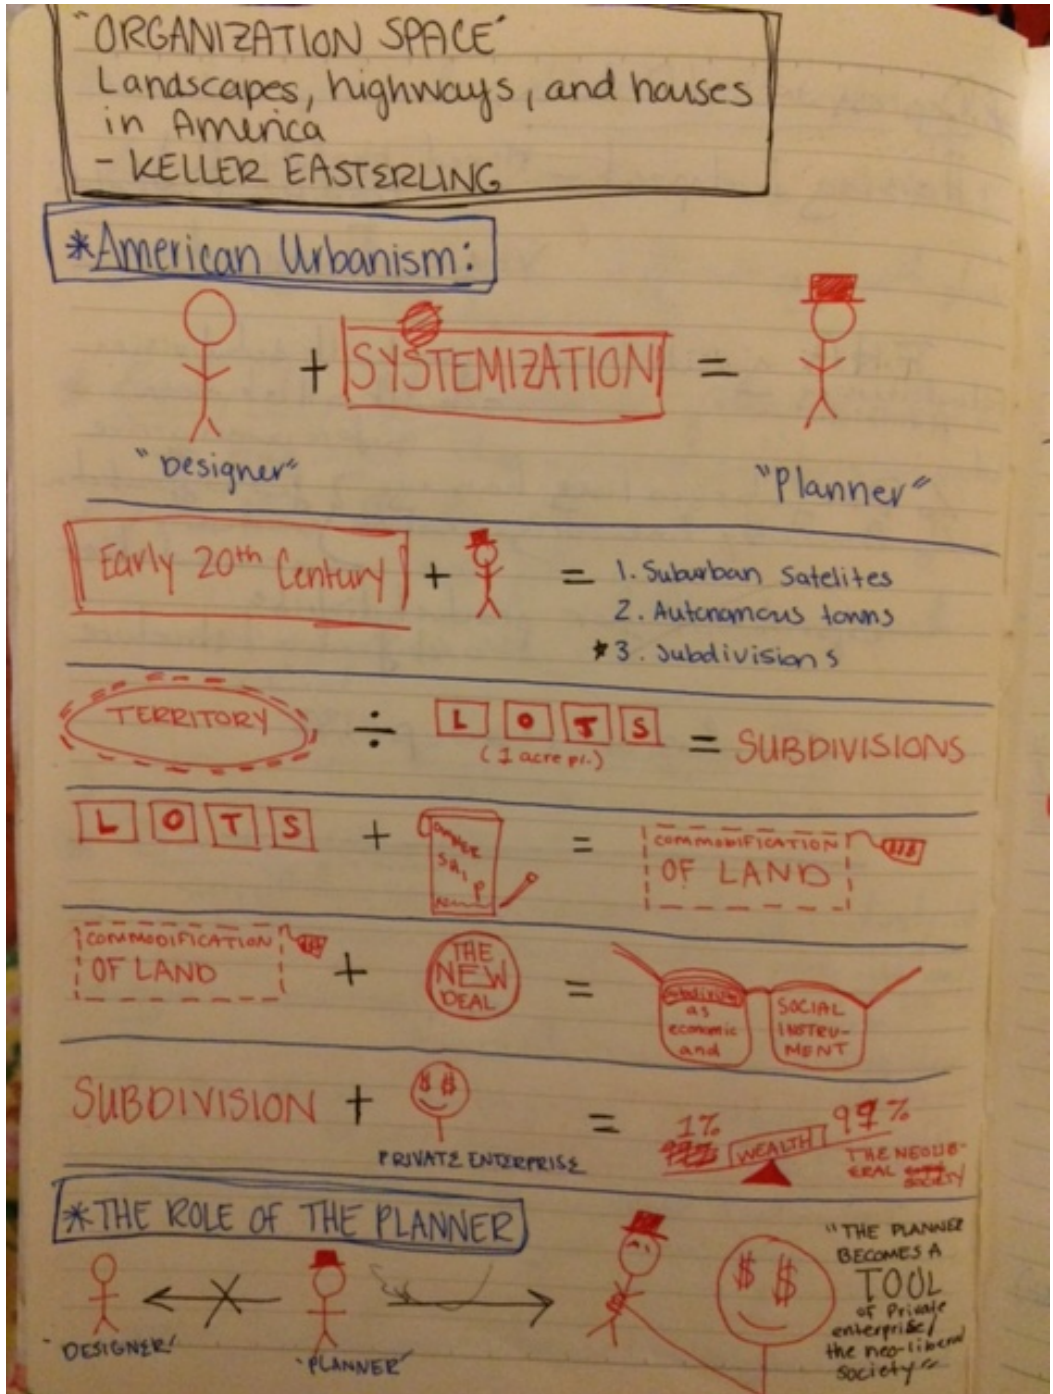 "ORGANIZATION SPACE"
Landscapes, highways, and houses
in America
- KELLER EASTERLING
*American Urbanism:
+ SYSTEMIZATION =
"Designer"
"Planner"
Early 20th Century + = 1. Suburban Satelites
2. Autonomous towns
*3. Subdivisions
TERRITORY ÷ LOTS = SUBDIVISIONS
(1 acre pl.)
LOTS + OWNERSHIP = COMMODIFICATION
OF LAND
COMMODIFICATION
OF LAND
+
THE
NEW
DEAL
=
as
economic
and
SOCIAL
INSTRU-
MENT
SUBDIVISION + $$ =
PRIVATE ENTERPRISE
1% WEALTH 99%
THE NEOLIB-
ERAL
SOCIETY
*THE ROLE OF THE PLANNER
"DESIGNER"
"PLANNER"
$ $
"THE PLANNER
BECOMES A
TOOL
of Private
enterprise/
the neo-liberal
society"